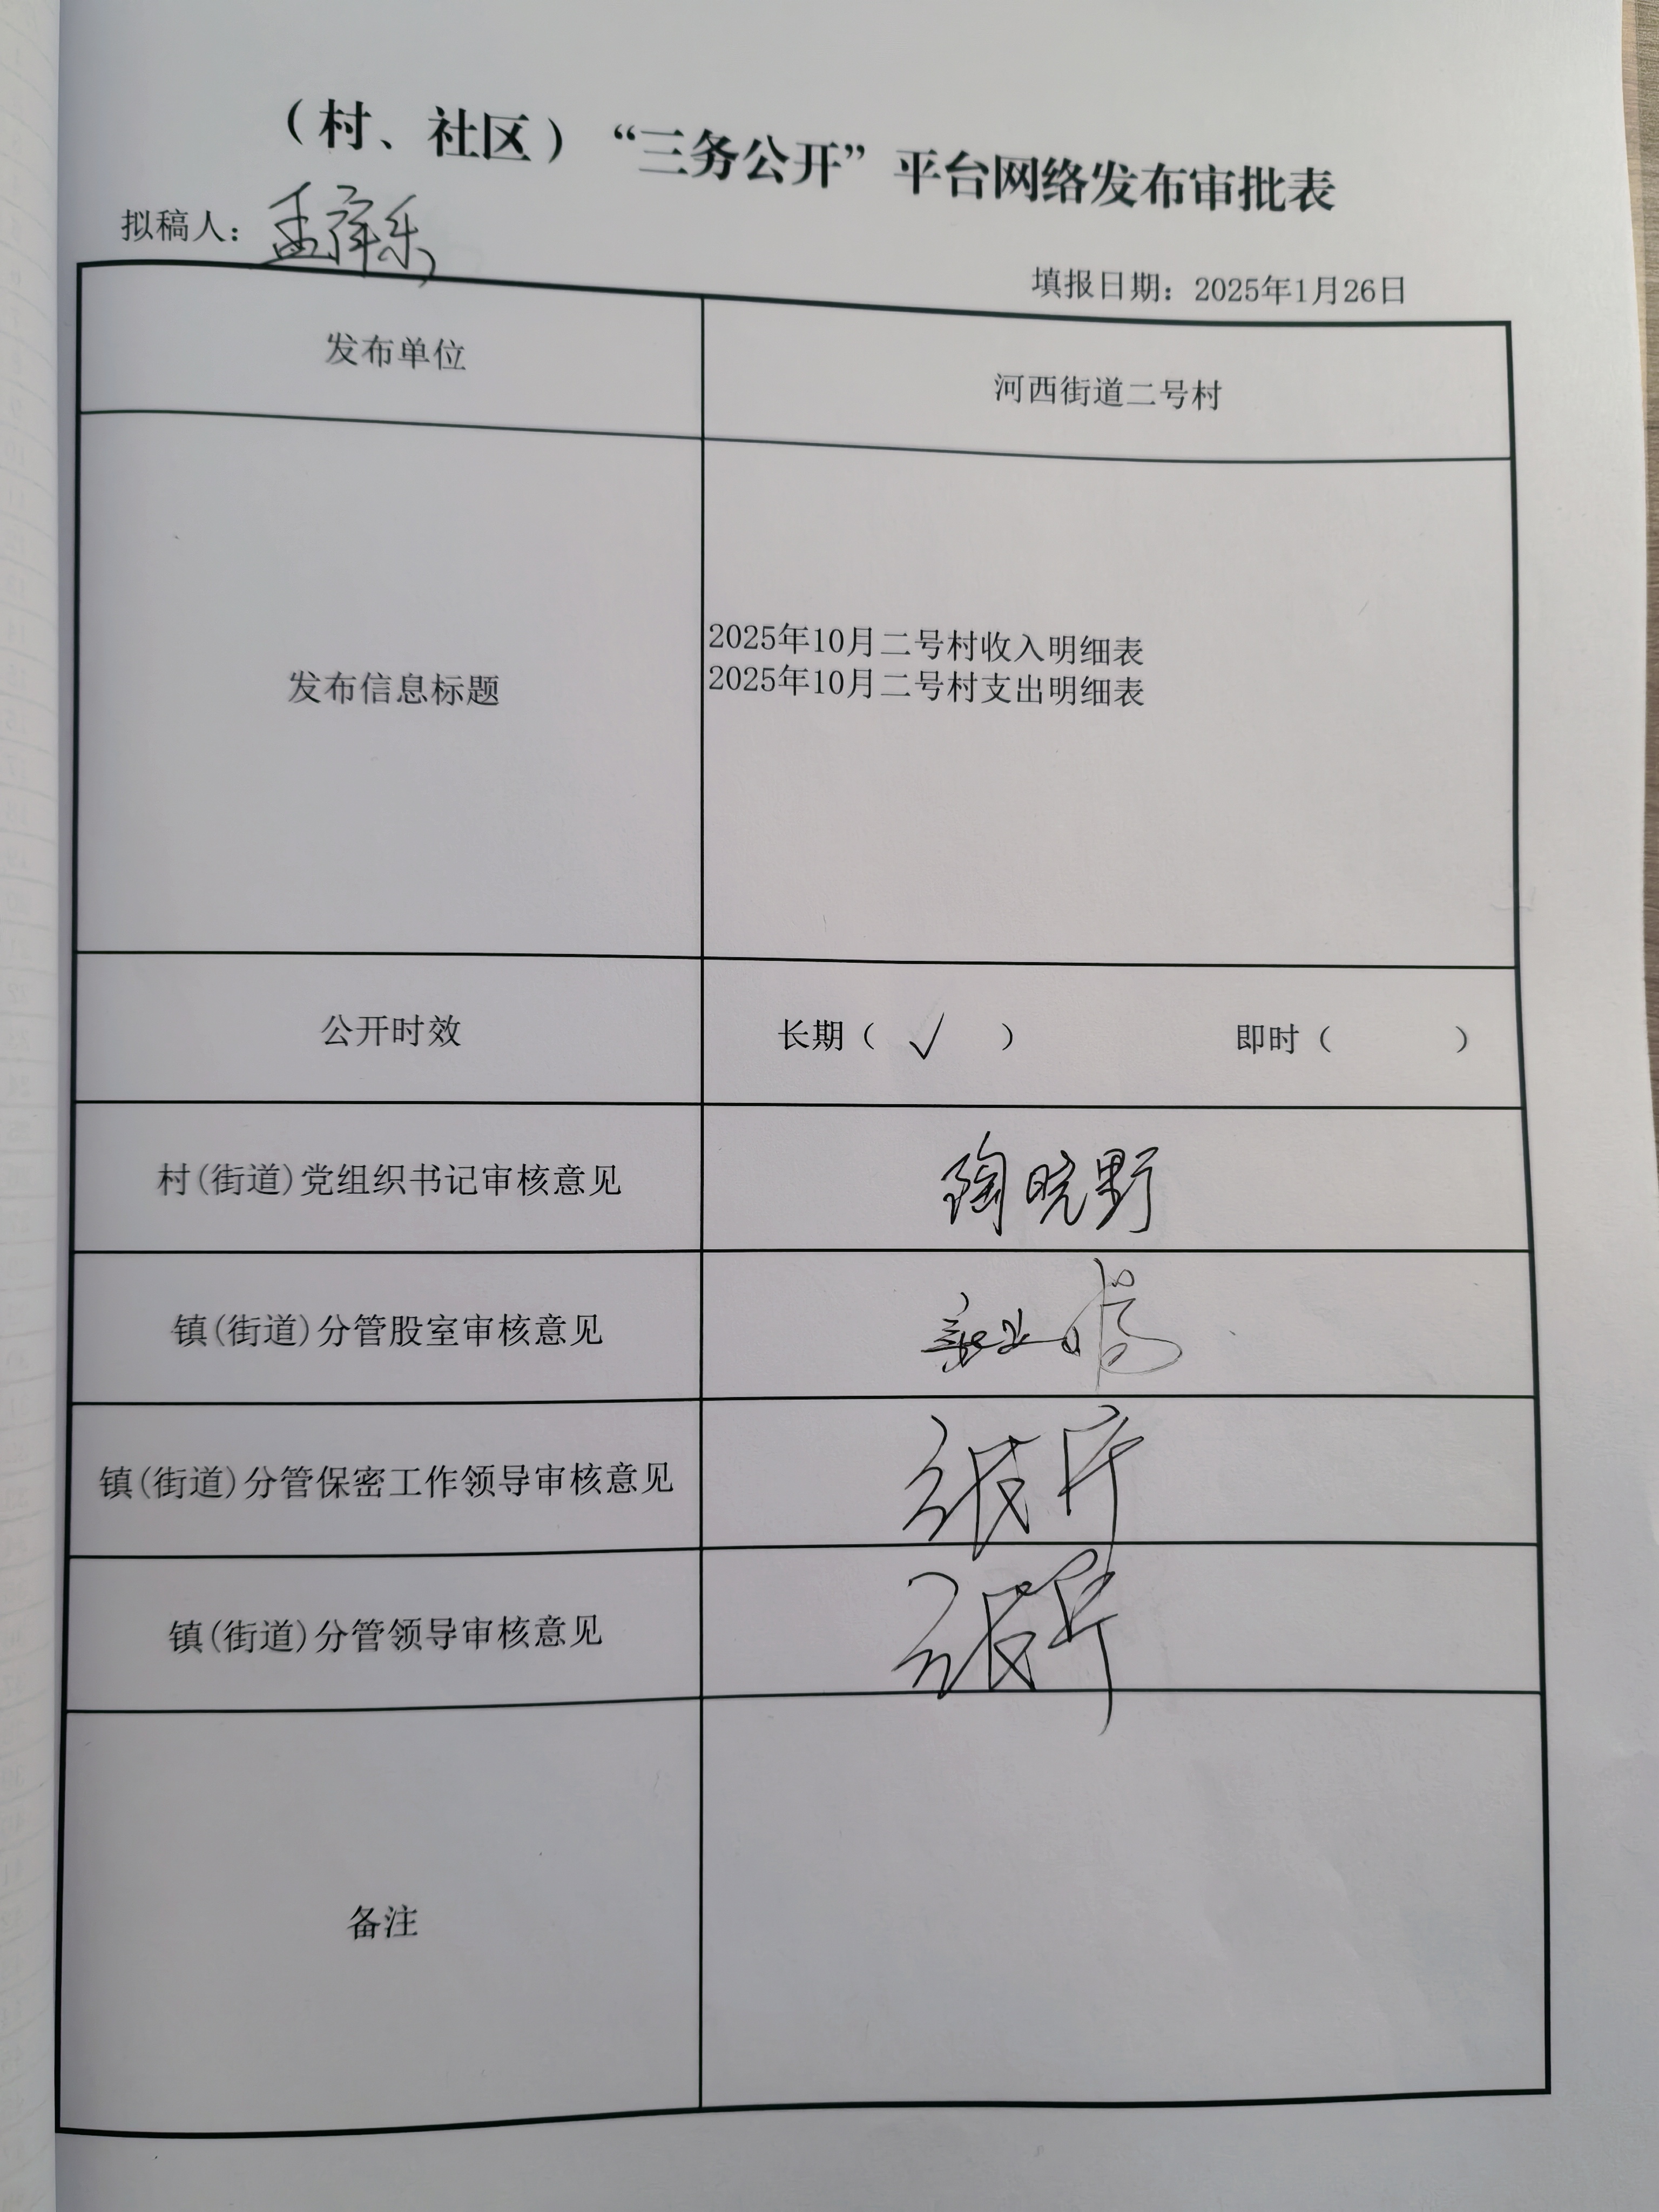 （村、社区）“三务公开”平台网络发布审批表
拟稿人：
填报日期：2025年1月26日
发布单位
河西街道二号村
发布信息标题
2025年10月二号村收入明细表
2025年10月二号村支出明细表
公开时效
长期（ √ ） 即时（ ）
村(街道)党组织书记审核意见
陶晓野
镇(街道)分管股室审核意见
镇(街道)分管保密工作领导审核意见
镇(街道)分管领导审核意见
备注